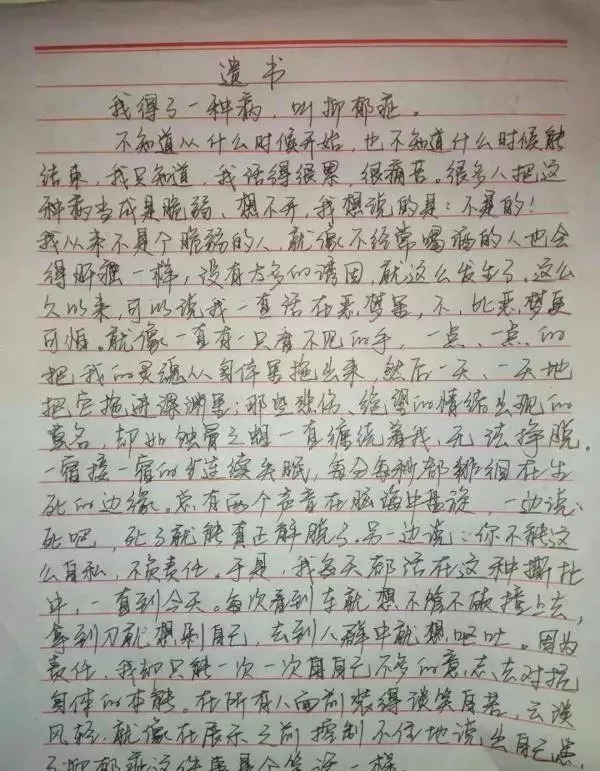 遗书
我得了一种病，叫抑郁症。
不知道从什么时候开始，也不知道什么时候能
结束，我只知道，我活得很累，很痛苦。很多人把这
种病当成是脆弱、想不开，我想说的是：不是的！
我从来不是个脆弱的人，就像不经常喝酒的人也会
得肝癌一样，没有太多的诱因，就这么发生了，这么
久以来，可以说我一直活在恶梦里，不，比恶梦更
可怕。就像一直有一只看不见的手，一点、一点的
把我的灵魂从身体里拖出来，然后一天、一天地
把它拖进深渊里；那些悲伤、绝望的情绪出现的
莫名，却如蚀骨之蛆一直缠绕着我，无法挣脱。
一宿接一宿的连续失眠，每分每秒都徘徊在生
死的边缘。总有两个声音在脑海中盘旋，一边说：
死吧，死了就能真正解脱了。另一边说：你不能这
么自私，不负责任。于是，我每天都活在这种撕扯
中，一直到今天。每次看到车就想不管不顾撞上去，
拿到刀就想剁自己，去到人群中就想呕吐。因为
责任，我却只能一次一次用自己不多的意志去对抗
身体的本能。在所有人面前装得谈笑自若、云淡
风轻，就像在展示之前控制不住地说出自己患
了抑郁症这件事是个笑话一样